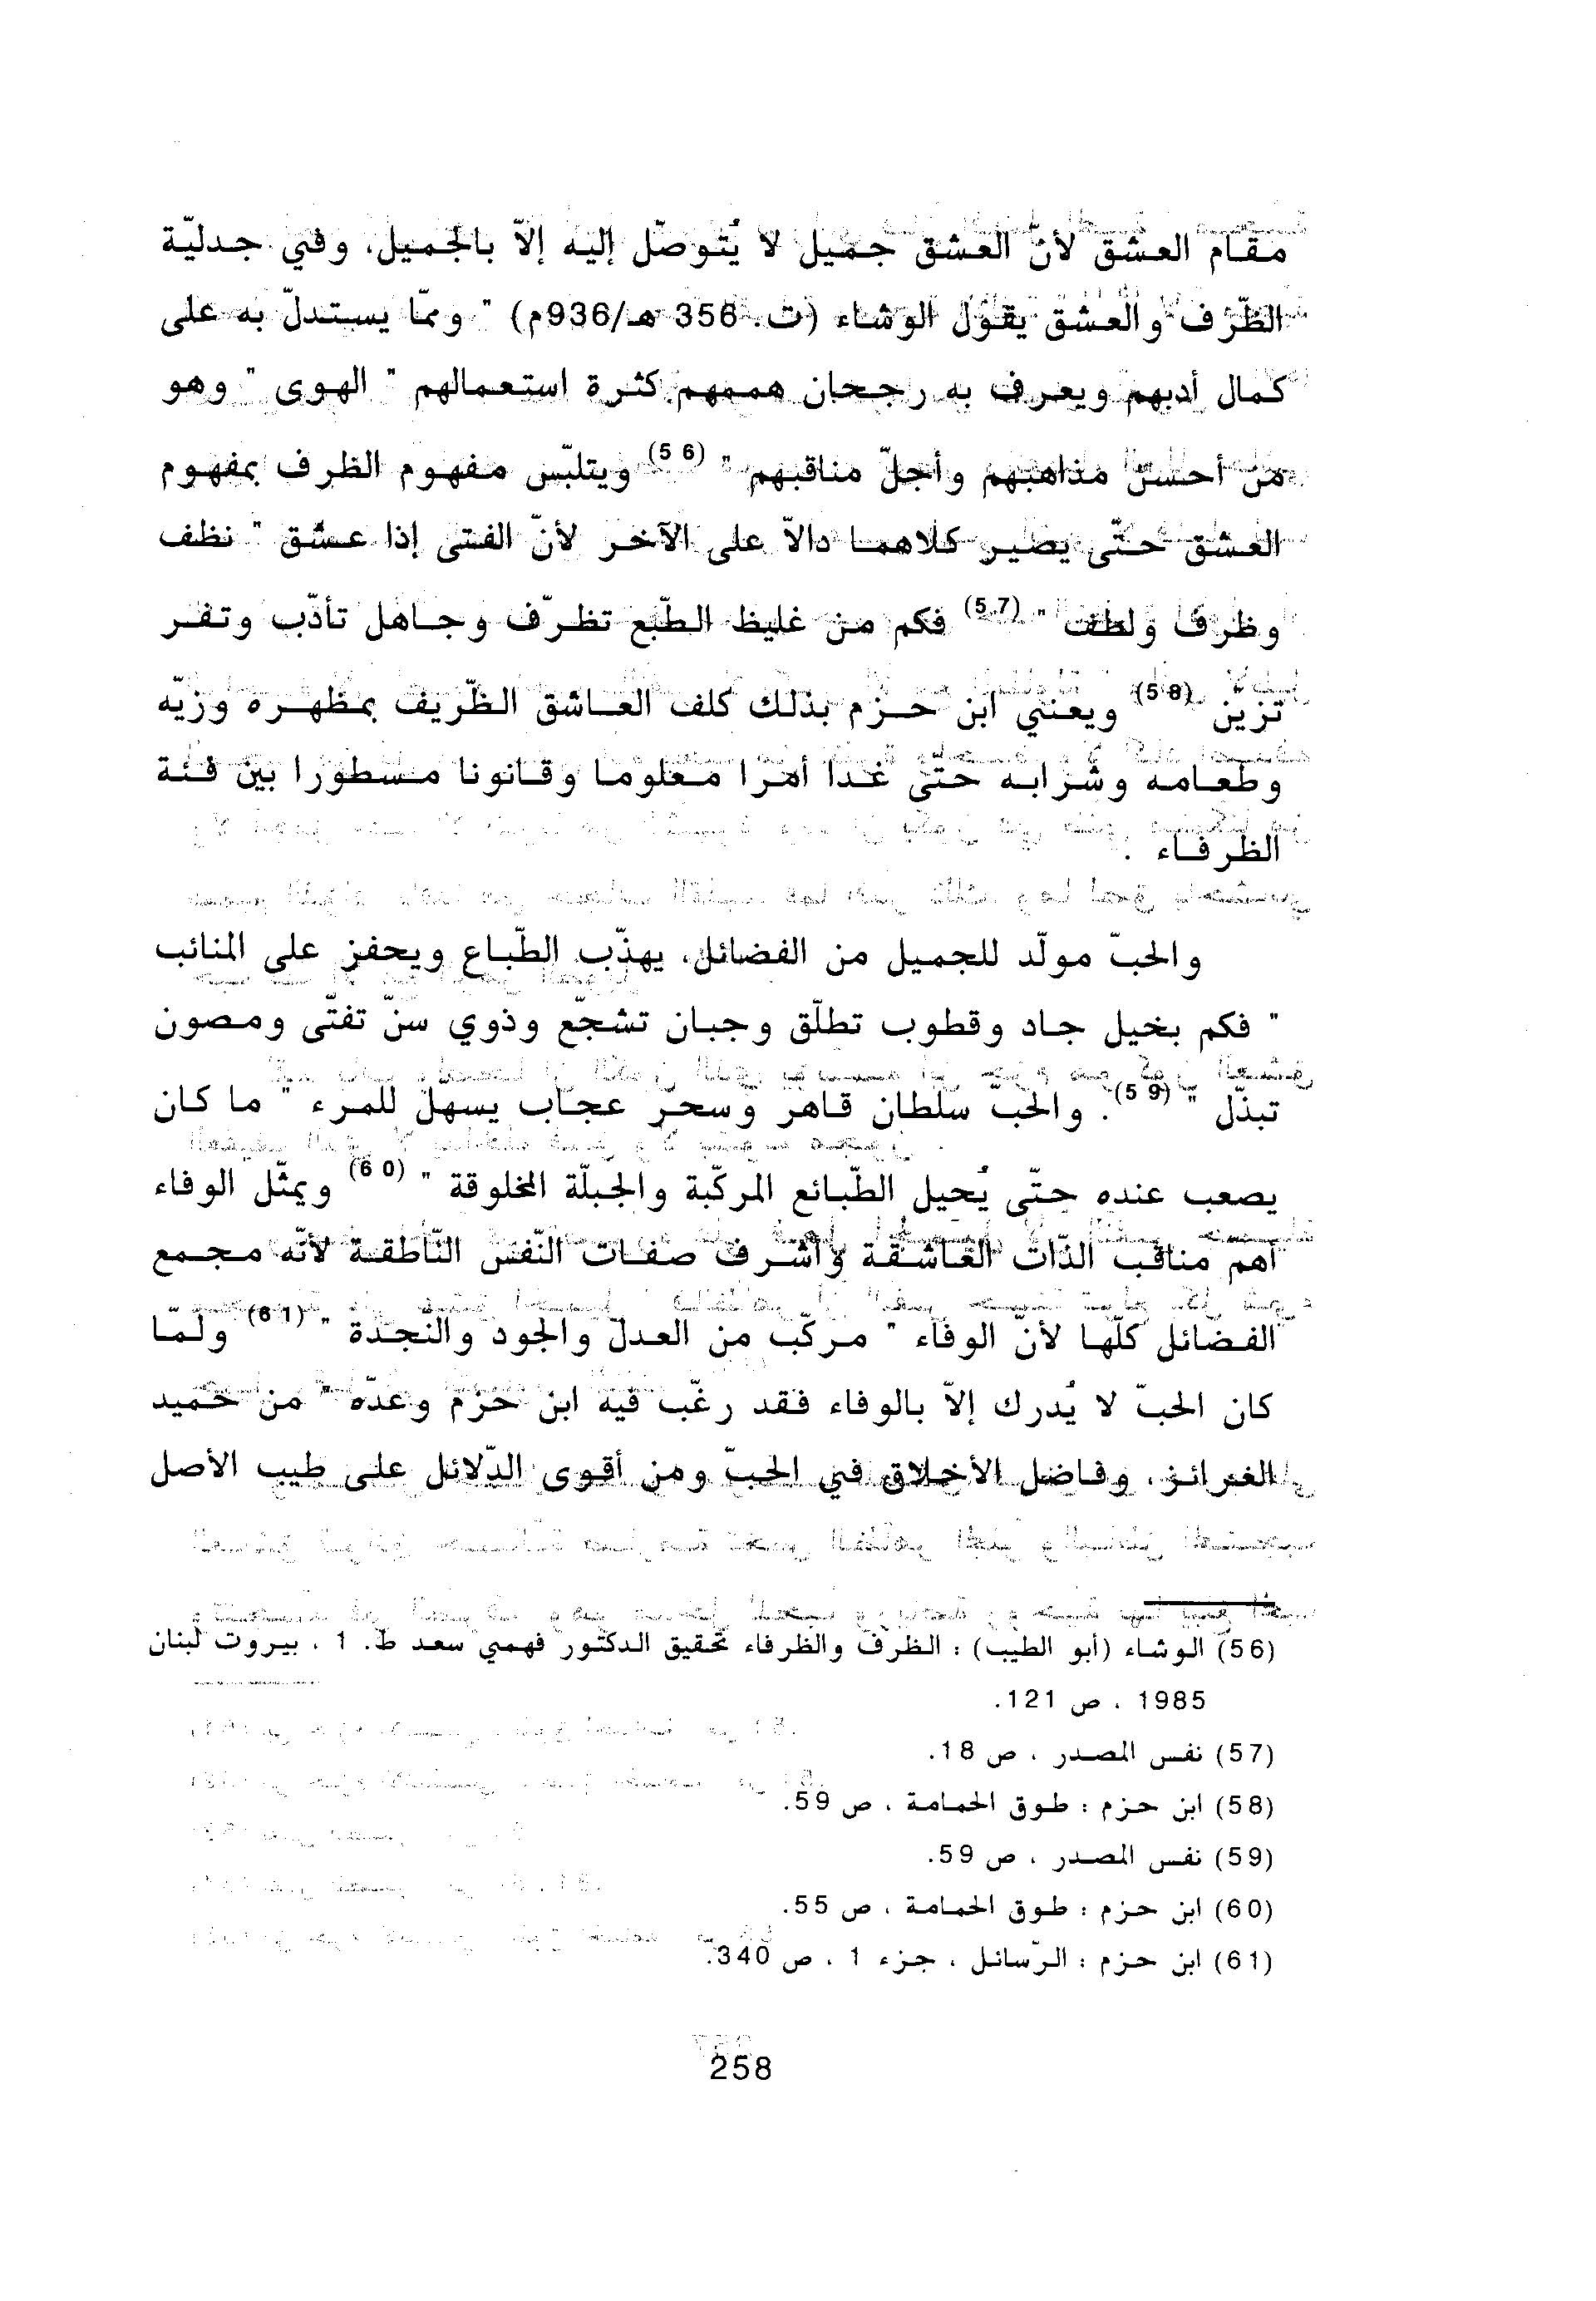 مقام العشق لأنّ العشق جميل لا يُتوصّل إليه إلاّ بالجميل، وفي جدليّة
الظّرف والعشق يقول الوشاء (ت. 356 هـ/936م) " وممّا يستدلّ به على
كمال أدبهم ويعرف به رجحان هممهم كثرة استعمالهم " الهوى " وهو
من أحسن مذاهبهم وأجلّ مناقبهم " (56) ويتلبّس مفهوم الظرف بمفهوم
العشق حتّى يصير كلاهما دالاّ على الآخر لأنّ الفتى إذا عشق " نظف
وظرف ولطف " (57) فكم من غليظ الطّبع تظرّف وجاهل تأدّب وتفر
تزين " (58) ويعني ابن حزم بذلك كلف العاشق الظّريف بمظهره وزيّه
وطعامه وشرابه حتّى غدا أمرا معلوما وقانونا مسطورا بين فئة
الظرفاء .
والحبّ مولّد للجميل من الفضائل، يهذّب الطّباع ويحفز على المنائب
" فكم بخيل جاد وقطوب تطلّق وجبان تشجّع وذوي سنّ تفتّى ومصون
تبذّل " (59). والحبّ سلطان قاهر وسحر عجاب يسهل للمرء " ما كان
يصعب عنده حتّى يُحيل الطّبائع المركّبة والجبلّة المخلوقة " (60) ويمثّل الوفاء
أهم مناقب الذّات العاشقة وأشرف صفات النّفس النّاطقة لأنّه مجمع
الفضائل كلّها لأنّ الوفاء " مركّب من العدل والجود والنّجدة " (61) ولمّا
كان الحبّ لا يُدرك إلاّ بالوفاء فقد رغّب فيه ابن حزم وعدّه " من حميد
الغرائز، وفاضل الأخلاق في الحبّ ومن أقوى الدّلائل على طيب الأصل
(56) الوشاء (أبو الطيب) : الظرف والظرفاء تحقيق الدكتور فهمي سعد ط. 1 ، بيروت لبنان
1985 ، ص 121.
(57) نفس المصدر ، ص 18.
(58) ابن حزم : طوق الحمامة ، ص 59.
(59) نفس المصدر ، ص 59.
(60) ابن حزم : طوق الحمامة ، ص 55.
(61) ابن حزم : الرّسائل ، جزء 1 ، ص 340.
258